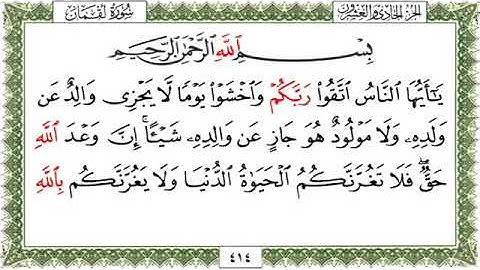 الجزء الحادي والعشرون
سورة لقمان
بِسْمِ ٱللَّهِ ٱلرَّحْمَٰنِ ٱلرَّحِيمِ
يَٰٓأَيُّهَا ٱلنَّاسُ ٱتَّقُوا۟ رَبَّكُمْ وَٱخْشَوْا۟ يَوْمًا لَّا يَجْزِى وَالِدٌ عَن
وَلَدِهِۦ وَلَا مَوْلُودٌ هُوَ جَازٍ عَن وَالِدِهِۦ شَيْـًٔا ۚ إِنَّ وَعْدَ ٱللَّهِ
حَقٌّ ۖ فَلَا تَغُرَّنَّكُمُ ٱلْحَيَوٰةُ ٱلدُّنْيَا وَلَا يَغُرَّنَّكُم بِٱللَّهِ
٤١٤